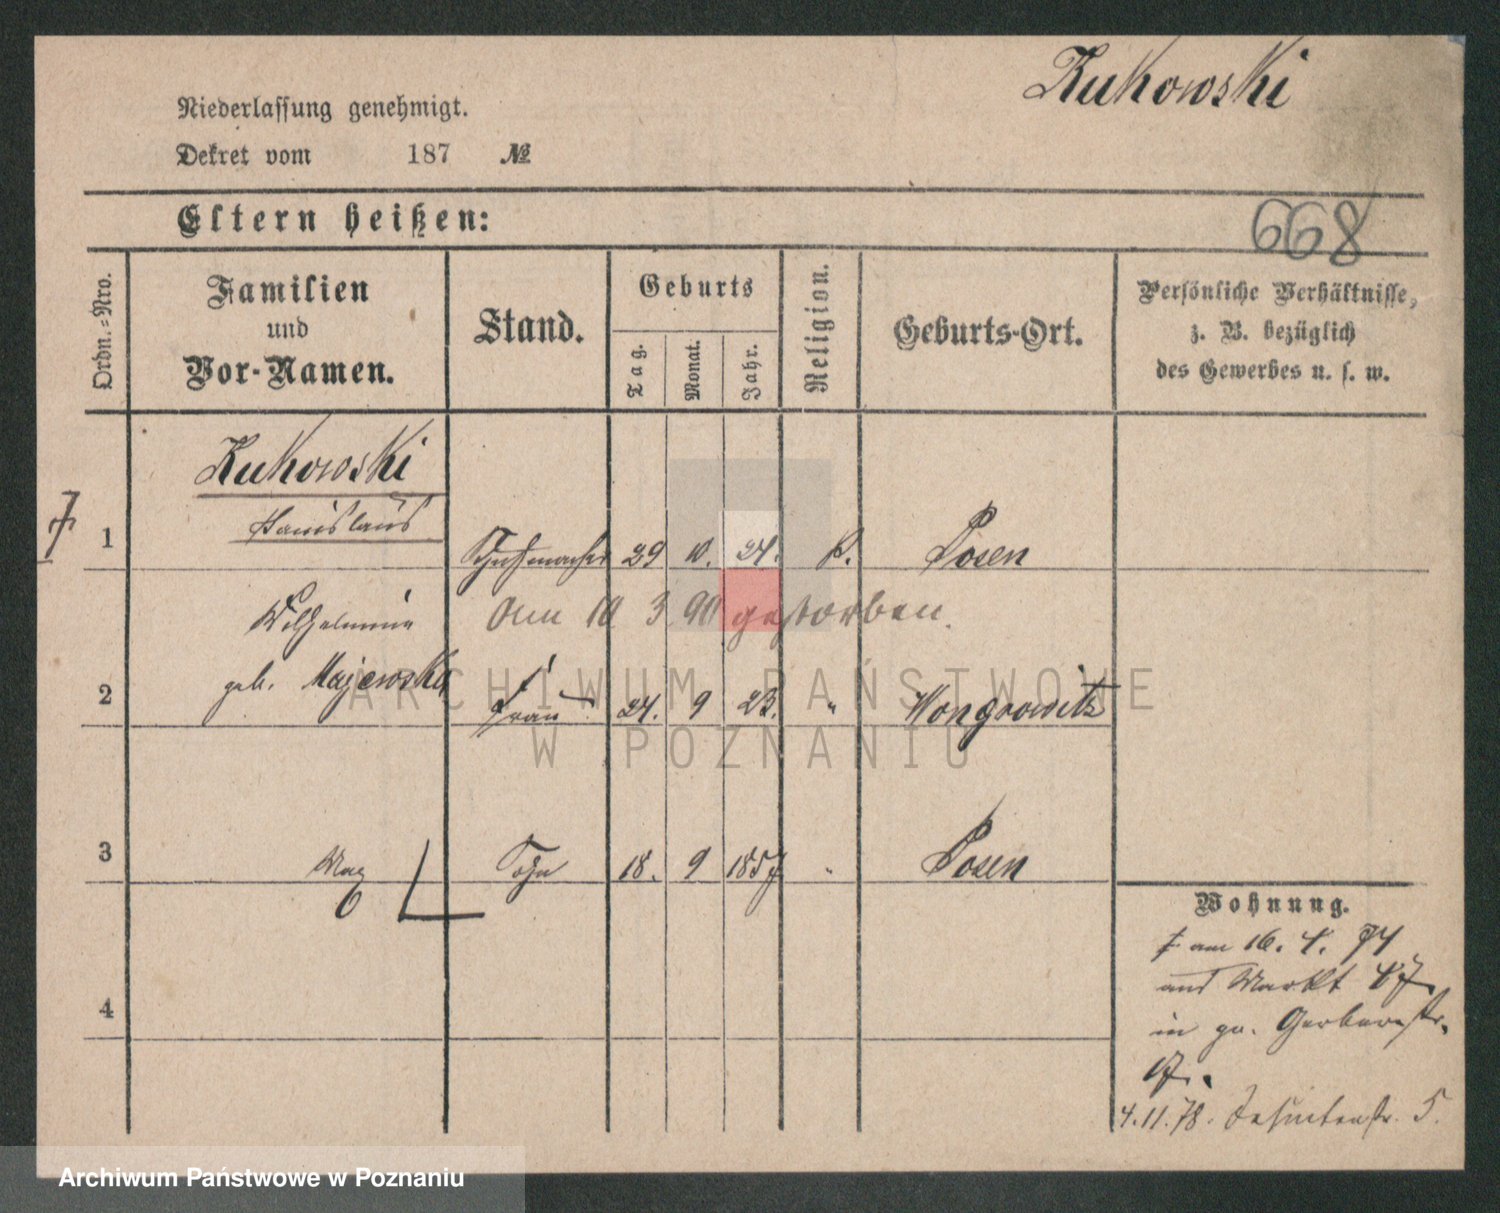 Kukowski
Niederlassung genehmigt.
Dekret vom 187 №
Eltern heißen:
668
Ordn.=Nro.
Familien
und
Vor-Namen.
Stand.
Geburts
Tag.
Monat.
Jahr.
Religion.
Geburts-Ort.
Persönliche Verhältnisse,
z. B. bezüglich
des Gewerbes u. s. w.
Kukowski
Stanislaus
1 Schuhmacher 29 10. 24. k. Posen
Wilhelmine
Am 10 3 90 gestorben.
2 geb. Majewska Frau 24. 9 23. " Wongrowitz
3 Max Sohn 18. 9 1857 " Posen
4
Wohnung.
am 16. 4. 74
aus Markt 47.
in gr. Gerberstr.
17.
4.11.78. Jesuitenstr. 5.
ARCHIWUM PAŃSTWOWE
W POZNANIU
Archiwum Państwowe w Poznaniu